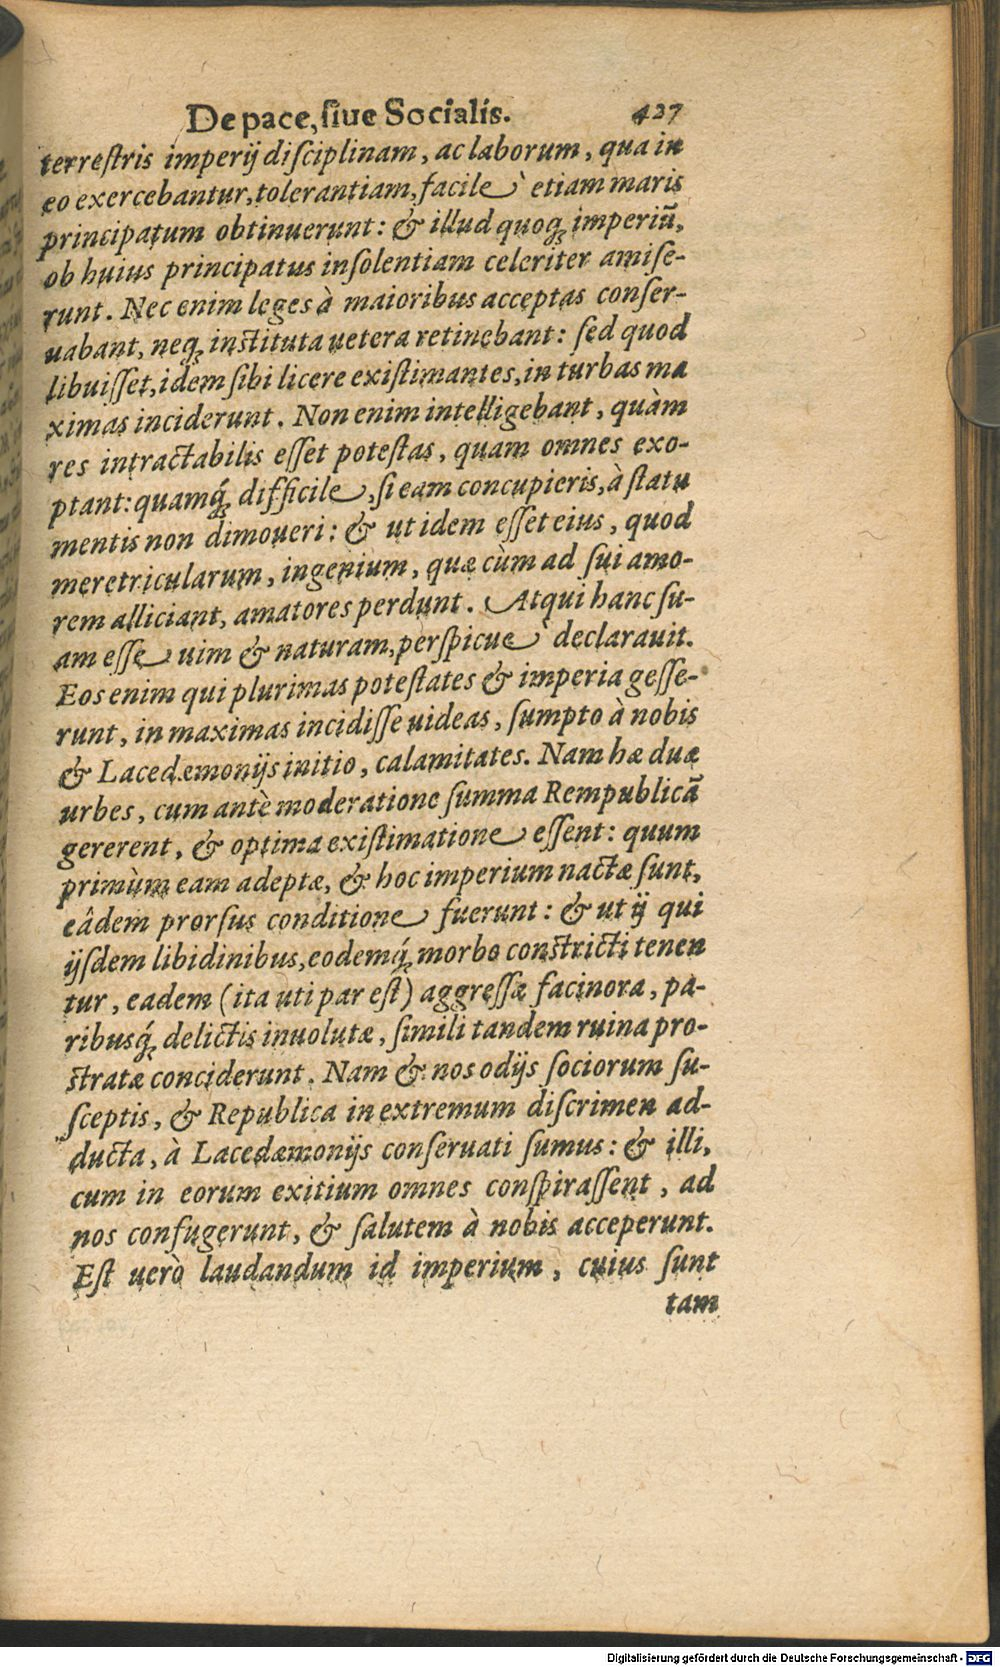 De pace, ſiue Socialis. 427
terreſtris imperij diſciplinam, ac laborum, qua in
eo exercebantur, tolerantiam, facilè etiam maris
principatum obtinuerunt: & illud quoq́ imperiū,
ob huius principatus inſolentiam celeriter amiſe-
runt. Nec enim leges à maioribus acceptas conſer-
uabant, neq; inſtituta uetera retinebant: ſed quod
libuiſſet, idem ſibi licere exiſtimantes, in turbas ma
ximas inciderunt. Non enim intelligebant, quàm
res intractabilis eſſet poteſtas, quam omnes exo-
ptant: quamq́; difficile, ſi eam concupieris, à ſtatu
mentis non dimoueri: & ut idem eſſet eius, quod
meretricularum, ingenium, quæ cùm ad ſui amo-
rem alliciant, amatores perdunt. Atqui hanc ſu-
am eſſe uim & naturam, perſpicuè declarauit.
Eos enim qui plurimas poteſtates & imperia geſſe-
runt, in maximas incidiſſe uideas, ſumpto à nobis
& Lacedæmonijs initio, calamitates. Nam hæ duæ
urbes, cum antè moderatione ſumma Rempublicā
gererent, & optima exiſtimatione eſſent: quum
primùm eam adeptæ, & hoc imperium nactæ ſunt,
eâdem prorſus conditione fuerunt: & ut ij qui
ijſdem libidinibus, eodemq́; morbo conſtricti tenen
tur, eadem (ita uti par eſt) aggreſſæ facinora, pa-
ribusq́; delictis inuolutæ, ſimili tandem ruina pro-
ſtratæ conciderunt. Nam & nos odijs ſociorum ſu-
ſceptis, & Republica in extremum diſcrimen ad-
ducta, à Lacedæmonijs conſeruati ſumus: & illi,
cum in eorum exitium omnes conſpiraſſent, ad
nos confugerunt, & ſalutem à nobis acceperunt.
Eſt uerò laudandum id imperium, cuius ſunt
tam
Digitalisierung gefördert durch die Deutsche Forschungsgemeinschaft - DFG